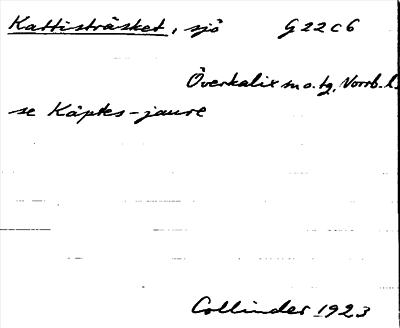 Kattisträsket, sjö G22c6
Överkalix sn o. tg, Norrb. l.
se Käptes-jaure
Collinder 1923